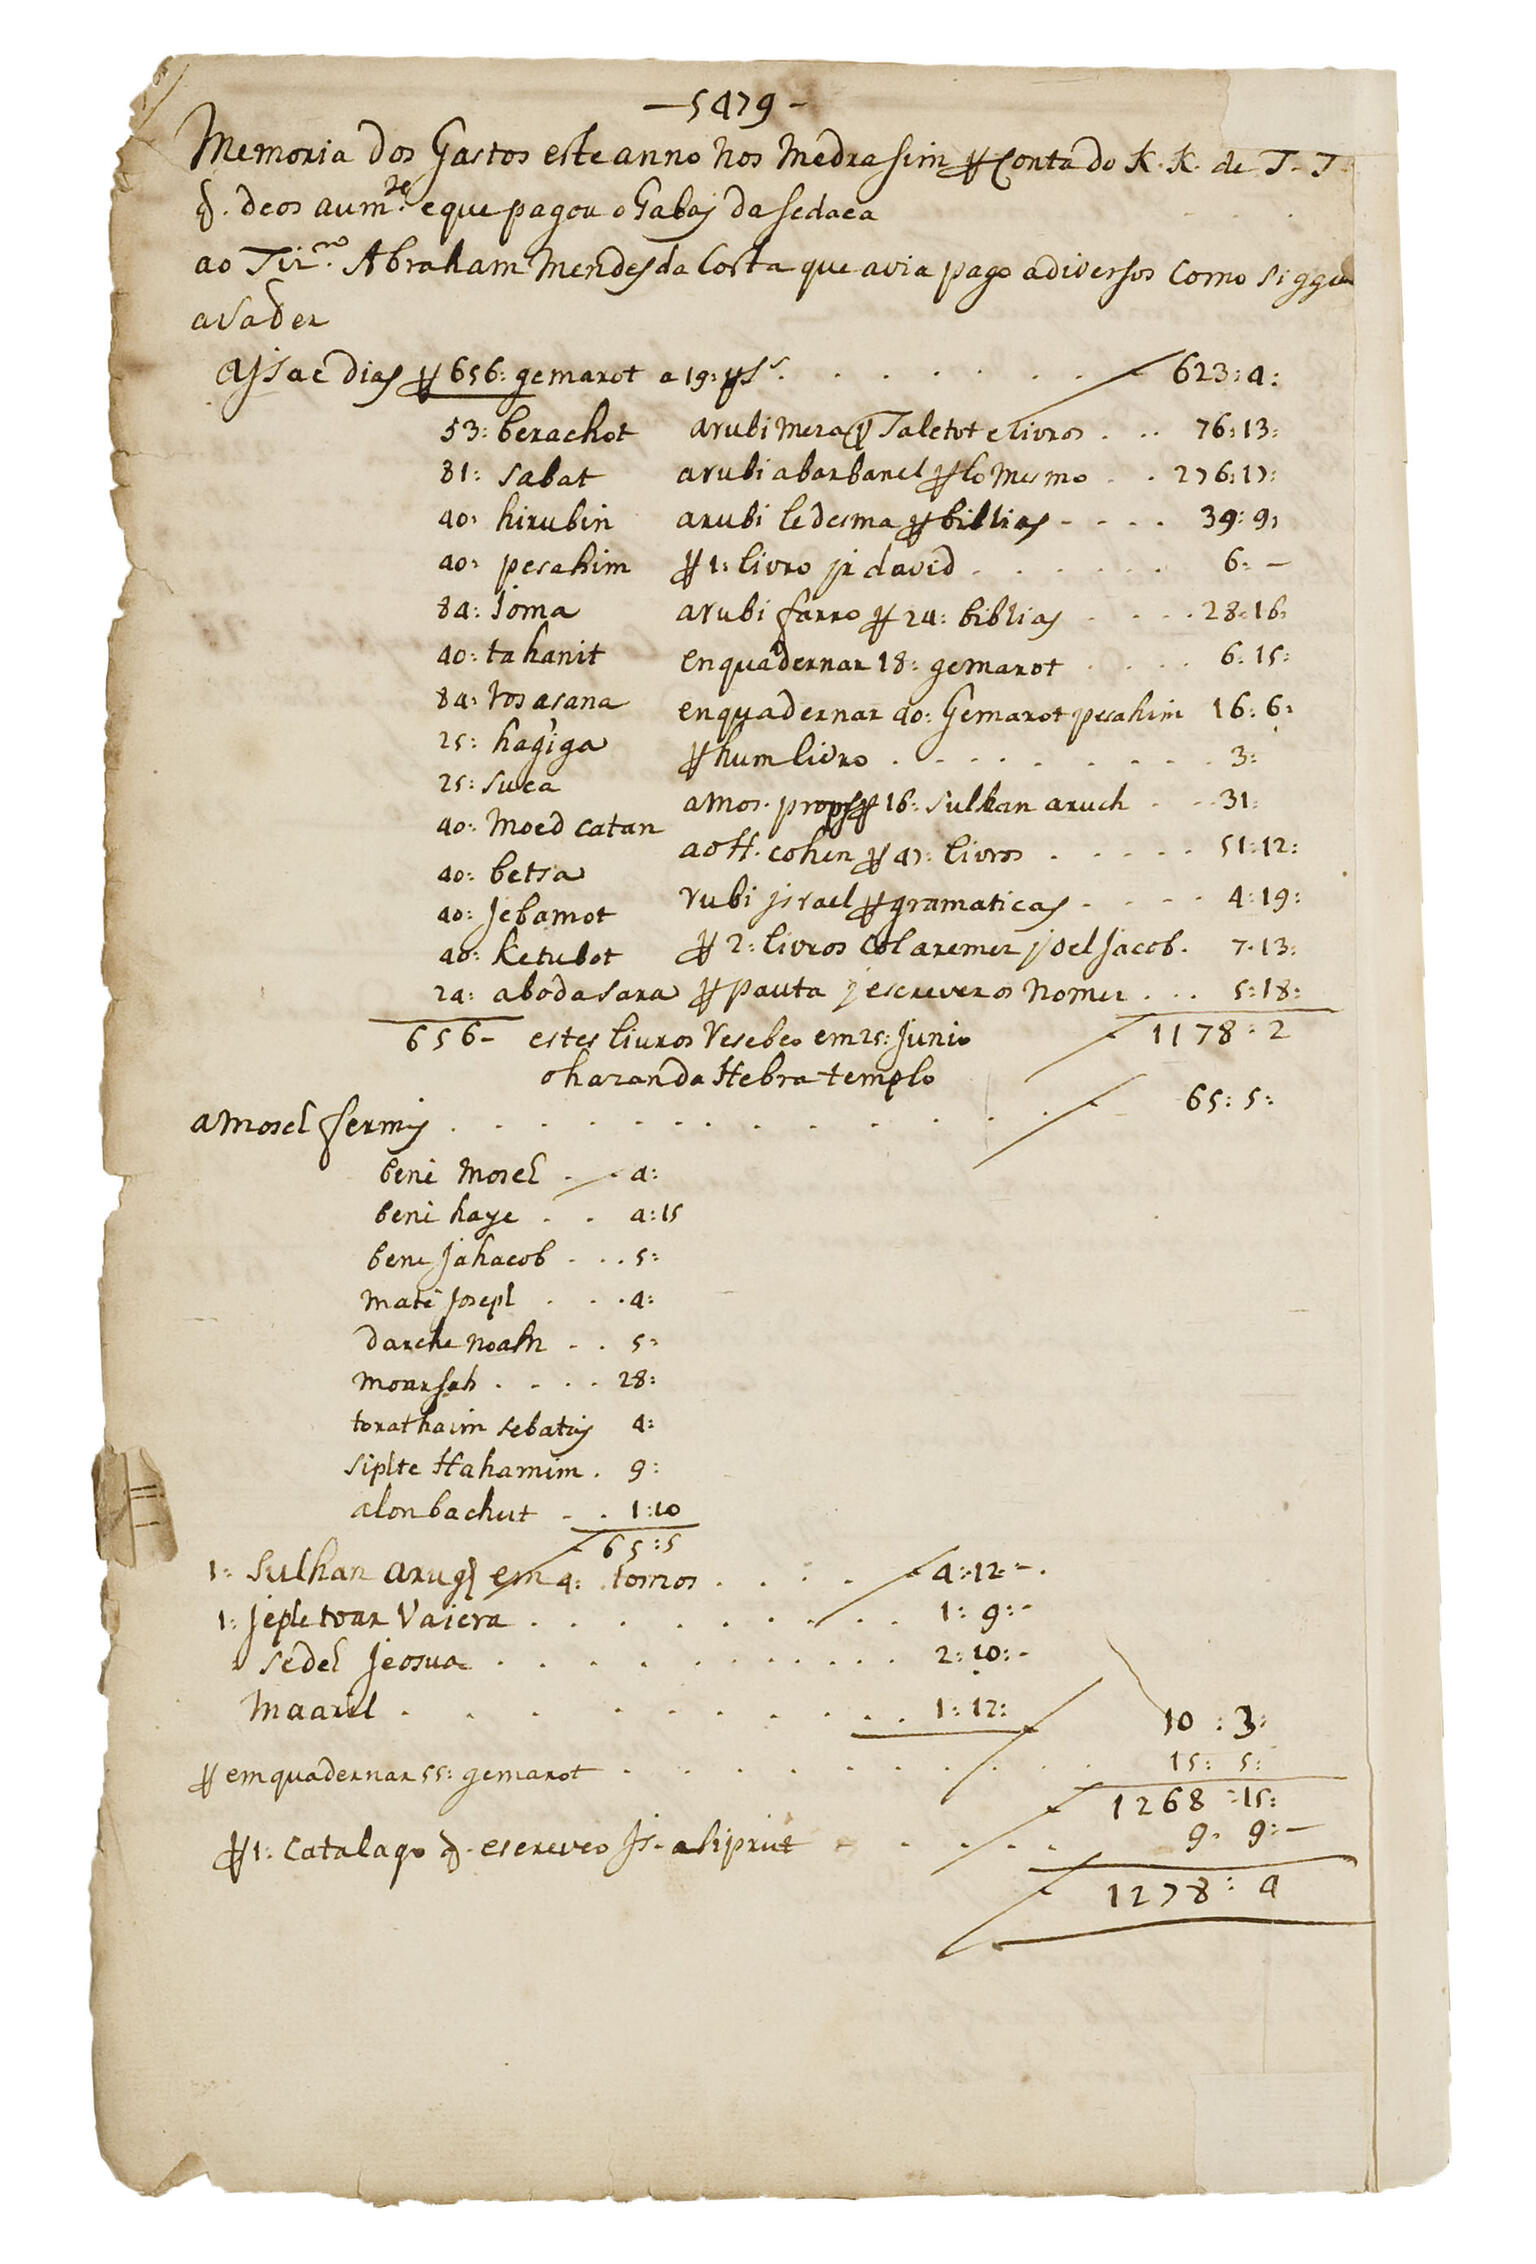 —5479—
Memoria dos Gastos este anno nos medrasim p Conta do K. K. de T. T.
q. deos aumte. e que pagou o Gabaj da sedaca
ao Tirno. Abraham Mendes da Costa que avia pago a diversos Como siggue
a sader
a jsac dias p 656: gemarot a 19: pss. 623:4:
53: berachot arubi mera p Taletot e livros . . . 76:13:
31: sabat arubi abarbanel p lo mesmo . . 276:17:
40: hirubin arubi ledesma p biblias . . . . 39:9:
40: pesahim p 1: livro jr david . . . . . . 6:—
84: Joma arubi farro p 24: biblias . . . . 28:16:
40: tahanit enquadernar 18: gemarot . . . . 6:15:
84: Rosasana enquadernar 40: Gemarot pesahim 16:6:
25: hagiga p hum livro . . . . . . . . . 3:
25: suca
40: Moed catan a mos. props p 16: sulhan aruch . . . 31:
40: betsa ao H. cohen p 47: livros . . . . . 51:12:
40: Jebamot rubi jsrael p gramaticas . . . . 4:19:
40: Ketubot p 2: livros Col aremer joel Jacob. 7:13:
24: abodasara p pauta j escrever os nomes . . . 5:18:
656— estes livros Resebeo em 25: Junio 1178:2
o hazan da Hebra templo
a Moseh fermy . . . . . . . . . . . 65:5:
bene Moseh . . 4:
bene haye . . 4:15
bene Jahacob . . . 5:
mate Joseph . . . 4:
darche noah . . 5:
moarsah . . . . 28:
torat haim sebataj 4:
siphte Hahamim . 9:
alon bachut . . 1:10
65:5
1: sulhan arugh em 4: tomos . . . . 4:12:—.
1: jephe toar Vaiera . . . . . . . . 1:9:—
sedeh jeosua . . . . . . . . . . . 2:10:—
Maaril . . . . . . . . . . 1:12: 10:3:
p emquadernar 55: gemarot . . . . . . . . . 15:5:
1268:15:
p 1: catalago q. escreveo Js. aliprut . . . . . 9:9:—
1278:4